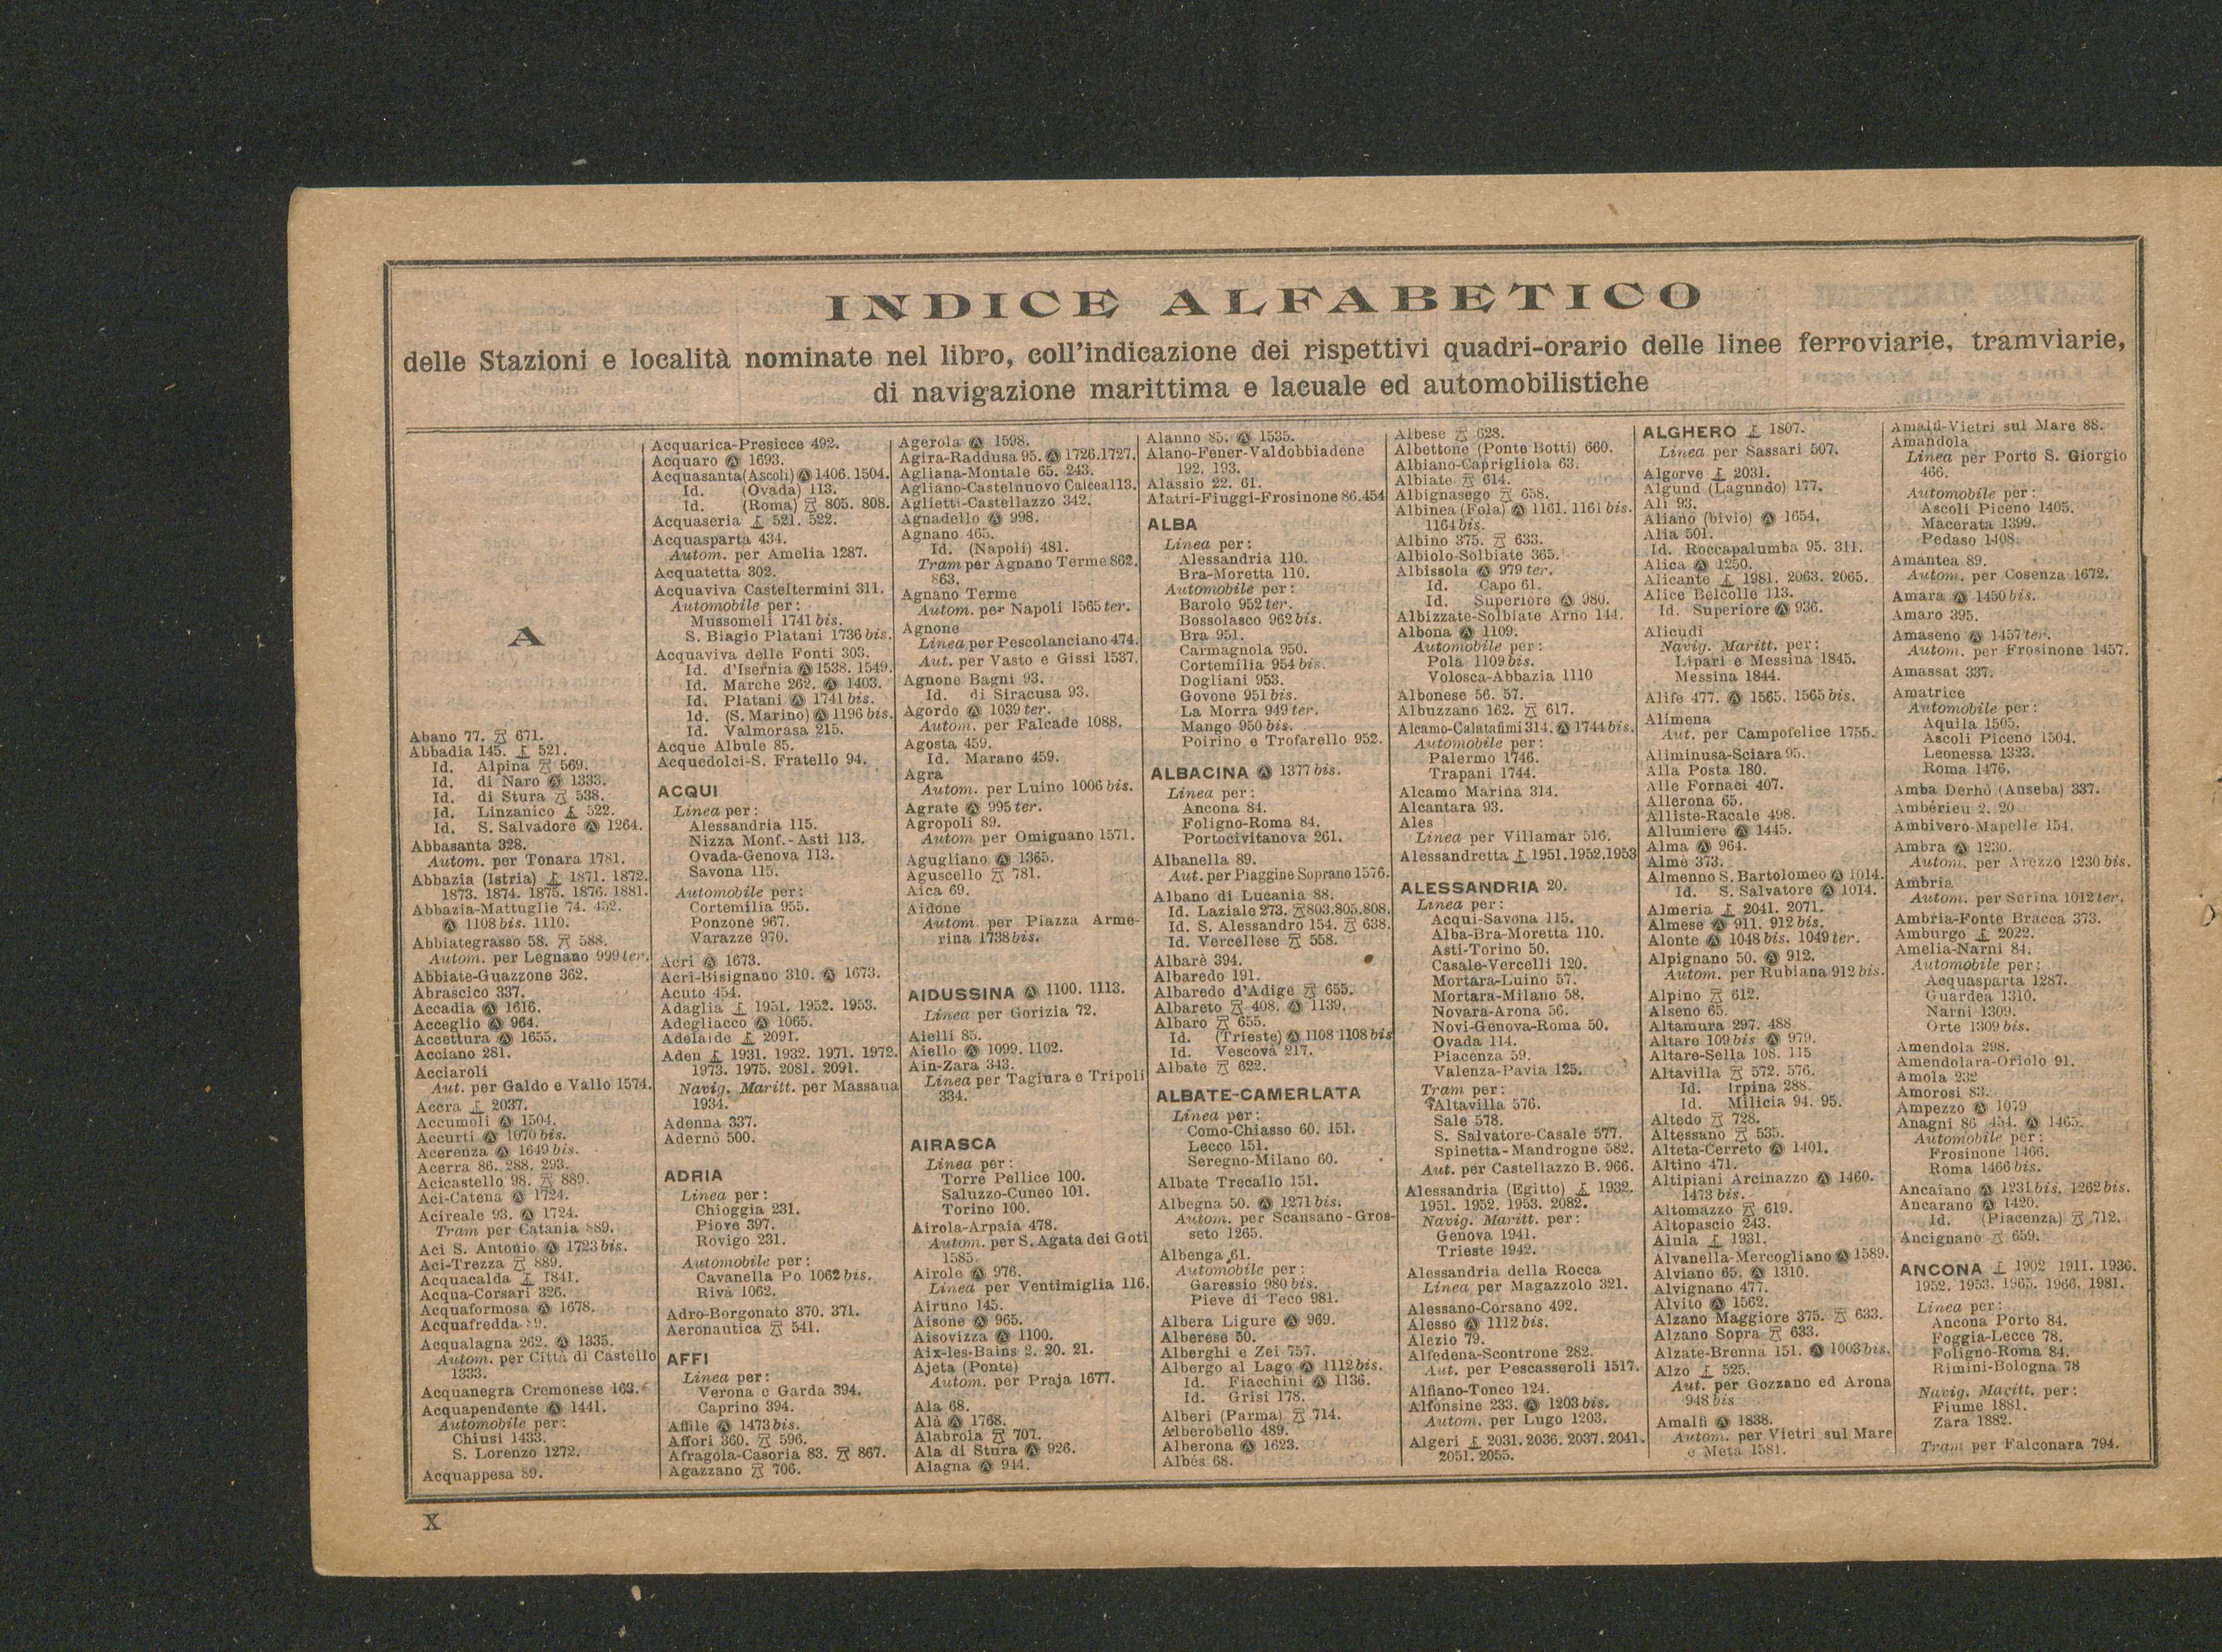 INDICE ALFABETICO
delle Stazioni e località nominate nel libro, coll'indicazione dei rispettivi quadri-orario delle linee ferroviarie, tramviarie,
di navigazione marittima e lacuale ed automobilistiche
A
Abano 77. 671.
Abbadia 145. 521.
Id. Alpina 569.
Id. di Naro 1333.
Id. di Stura 538.
Id. Linzanico 522.
Id. S. Salvadore 1264.
Abbasanta 328.
Autom. per Tonara 1781.
Abbazia (Istria) 1871. 1872.
1873. 1874. 1875. 1876. 1881.
Abbazia-Mattuglie 74. 452.
1108 bis. 1110.
Abbiategrasso 58. 588.
Autom. per Legnano 999 ter.
Abbiate-Guazzone 362.
Abrascico 337.
Accadia 1616.
Acceglio 964.
Accettura 1655.
Acciano 281.
Acciaroli
Aut. per Galdo e Vallo 1574.
Accra 2037.
Accumoli 1504.
Accurti 1070 bis.
Acerenza 1649 bis.
Acerra 86. 288. 293.
Acicastello 98. 889.
Aci-Catena 1724.
Acireale 93. 1724.
Tram per Catania 889.
Aci S. Antonio 1723 bis.
Aci-Trezza 889.
Acquacalda 1841.
Acqua-Corsari 326.
Acquaformosa 1678.
Acquafredda
Acqualagna 262. 1335.
Autom. per Città di Castello
1333.
Acquanegra Cremonese 163.
Acquapendente 1441.
Automobile per:
Chiusi 1433.
S. Lorenzo 1272.
Acquappesa 89.
Acquarica-Presicce 492.
Acquaro 1693.
Acquasanta (Ascoli) 1406. 1504.
Id. (Ovada) 113.
Id. (Roma) 805. 808.
Acquaseria 521. 522.
Acquasparta 434.
Autom. per Amelia 1287.
Acquatetta 302.
Acquaviva Casteltermini 311.
Automobile per:
Mussomeli 1741 bis.
S. Biagio Platani 1736 bis.
Acquaviva delle Fonti 303.
Id. d'Isernia 1538. 1549.
Id. Marche 262. 1403.
Id. Platani 1741 bis.
Id. (S. Marino) 1196 bis.
Id. Valmorasa 215.
Acque Albule 85.
Acquedolci-S. Fratello 94.
ACQUI
Linea per:
Alessandria 115.
Nizza Monf.-Asti 113.
Ovada-Genova 113.
Savona 115.
Automobile per:
Cortemilia 955.
Ponzone 967.
Varazze 970.
Acri 1673.
Acri-Bisignano 310. 1673.
Acuto 454.
Adaglia 1951. 1952. 1953.
Adegliacco 1065.
Adelaide 2091.
Aden 1931. 1932. 1971. 1972.
1973. 1975. 2081. 2091.
Navig. Maritt. per Massaua
1934.
Adenna 337.
Adernò 500.
ADRIA
Linea per:
Chioggia 231.
Piove 397.
Rovigo 231.
Automobile per:
Cavanella Po 1062 bis.
Riva 1062.
Adro-Borgonato 370. 371.
Aeronautica 541.
AFFI
Linea per:
Verona e Garda 394.
Caprino 394.
Affile 1473 bis.
Affori 360. 596.
Afragola-Casoria 83. 867.
Agazzano 706.
Agerola 1598.
Agira-Raddusa 95. 1726. 1727.
Agliana-Montale 65. 243.
Agliano-Castelnuovo Calcea 113.
Aglietti-Castellazzo 342.
Agnadello 998.
Agnano 465.
Id. (Napoli) 481.
Tram per Agnano Terme 862.
863.
Agnano Terme
Autom. per Napoli 1565 ter.
Agnone
Linea per Pescolanciano 474.
Aut. per Vasto e Gissi 1537.
Agnone Bagni 93.
Id. di Siracusa 93.
Agordo 1039 ter.
Autom. per Falcade 1088.
Agosta 459.
Id. Marano 459.
Agra
Autom. per Luino 1006 bis.
Agrate 995 ter.
Agropoli 89.
Autom. per Omignano 1571.
Agugliano 1365.
Aguscello 781.
Aica 69.
Aidone
Autom. per Piazza Arme-
rina 1738 bis.
AIDUSSINA 1100. 1113.
Linea per Gorizia 72.
Aielli 85.
Aiello 1099. 1102.
Ain-Zara 343.
Linea per Tagiura e Tripoli
334.
AIRASCA
Linea per:
Torre Pellice 100.
Saluzzo-Cuneo 101.
Torino 100.
Airola-Arpaia 478.
Autom. per S. Agata dei Goti
1585.
Airole 976.
Linea per Ventimiglia 116.
Airuno 145.
Aisone 965.
Aisovizza 1100.
Aix-les-Bains 2. 20. 21.
Ajeta (Ponte)
Autom. per Praja 1677.
Ala 68.
Alà 1768.
Alabrola 707.
Ala di Stura 926.
Alagna 944.
Alanno 85. 1535.
Alano-Fener-Valdobbiadene
192. 193.
Alassio 22. 61.
Alatri-Fiuggi-Frosinone 86. 454
ALBA
Linea per:
Alessandria 110.
Bra-Moretta 110.
Automobile per:
Barolo 952 ter.
Bossolasco 962 bis.
Bra 951.
Carmagnola 950.
Cortemilia 954 bis.
Dogliani 953.
Govone 951 bis.
La Morra 949 ter.
Mango 950 bis.
Poirino e Trofarello 952.
ALBACINA 1377 bis.
Linea per:
Ancona 84.
Foligno-Roma 84.
Portocivitanova 261.
Albanella 89.
Aut. per Piaggine Soprano 1576.
Albano di Lucania 88.
Id. Laziale 273. 803. 805. 808.
Id. S. Alessandro 154. 638.
Id. Vercellese 558.
Albarè 394.
Albaredo 191.
Albaredo d'Adige 655.
Albareto 408. 1139.
Albaro 655.
Id. (Trieste) 1108 1108 bis
Id. Vescovà 217.
Albate 622.
ALBATE-CAMERLATA
Linea per:
Como-Chiasso 60. 151.
Lecco 151.
Seregno-Milano 60.
Albate Trecallo 151.
Albegna 50. 1271 bis.
Autom. per Scansano-Gros-
seto 1265.
Albenga 61.
Automobile per:
Garessio 980 bis.
Pieve di Teco 981.
Albera Ligure 969.
Alberese 50.
Alberghi e Zei 757.
Albergo al Lago 1112 bis.
Id. Fiacchini 1136.
Id. Grisi 178.
Alberi (Parma) 714.
Alberobello 489.
Alberona 1623.
Albés 68.
Albese 628.
Albettone (Ponte Botti) 660.
Albiano-Caprigliola 63.
Albiate 614.
Albignasego 658.
Albinea (Fola) 1161. 1161 bis.
1164 bis.
Albino 375. 633.
Albiolo-Solbiate 365.
Albissola 979 ter.
Id. Capo 61.
Id. Superiore 980.
Albizzate-Solbiate Arno 144.
Albona 1109.
Automobile per:
Pola 1109 bis.
Volosca-Abbazia 1110
Albonese 56. 57.
Albuzzano 162. 617.
Alcamo-Calatafimi 314. 1744 bis.
Automobile per:
Palermo 1746.
Trapani 1744.
Alcamo Marina 314.
Alcantara 93.
Ales
Linea per Villamar 516.
Alessandretta 1951. 1952. 1953
ALESSANDRIA 20.
Linea per:
Acqui-Savona 115.
Alba-Bra-Moretta 110.
Asti-Torino 50.
Casale-Vercelli 120.
Mortara-Luino 57.
Mortara-Milano 58.
Novara-Arona 56.
Novi-Genova-Roma 50.
Ovada 114.
Piacenza 59.
Valenza-Pavia 125.
Tram per:
Altavilla 576.
Sale 578.
S. Salvatore-Casale 577.
Spinetta-Mandrogne 582.
Aut. per Castellazzo B. 966.
Alessandria (Egitto) 1932.
1951. 1952. 1953. 2082.
Navig. Maritt. per:
Genova 1941.
Trieste 1942.
Alessandria della Rocca
Linea per Magazzolo 321.
Alessano-Corsano 492.
Alesso 1112 bis.
Alezio 79.
Alfedena-Scontrone 282.
Aut. per Pescasseroli 1517.
Alfiano-Tonco 124.
Alfonsine 233. 1203 bis.
Autom. per Lugo 1203.
Algeri 2031. 2036. 2037. 2041.
2051. 2055.
ALGHERO 1807.
Linea per Sassari 507.
Algorve 2031.
Algund (Lagundo) 177.
Alì 93.
Aliano (bivio) 1654.
Alia 501.
Id. Roccapalumba 95. 311.
Alica 1250.
Alicante 1981. 2063. 2065.
Alice Belcolle 113.
Id. Superiore 936.
Alicudi
Navig. Maritt. per:
Lipari e Messina 1845.
Messina 1844.
Alife 477. 1565. 1565 bis.
Alimena
Aut. per Campofelice 1755.
Aliminusa-Sciara 95.
Alla Posta 180.
Alle Fornaci 407.
Allerona 65.
Alliste-Racale 498.
Allumiere 1445.
Alma 964.
Almè 373.
Almenno S. Bartolomeo 1014.
Id. S. Salvatore 1014.
Almeria 2041. 2071.
Almese 911. 912 bis.
Alonte 1048 bis. 1049 ter.
Alpignano 50. 912.
Autom. per Rubiana 912 bis.
Alpino 612.
Alseno 65.
Altamura 297. 488
Altare 109 bis 979.
Altare-Sella 108. 115
Altavilla 572. 576.
Id. Irpina 288.
Id. Milicia 94. 95.
Altedo 728.
Altessano 535.
Alteta-Cerreto 1401.
Altino 471.
Altipiani Arcinazzo 1460.
1473 bis.
Altomazzo 619.
Altopascio 243.
Alula 1931.
Alvanella-Mercogliano 1589.
Alviano 65. 1310.
Alvignano 477.
Alvito 1562.
Alzano Maggiore 375. 633.
Alzano Sopra 633.
Alzate-Brenna 151. 1003 bis.
Alzo 525.
Aut. per Gozzano ed Arona
948 bis
Amalfi 1838.
Autom. per Vietri sul Mare
e Meta 1581.
Amalfi-Vietri sul Mare 88.
Amandola
Linea per Porto S. Giorgio
466.
Automobile per:
Ascoli Piceno 1405.
Macerata 1399.
Pedaso 1408.
Amantea 89.
Autom. per Cosenza 1672.
Amara 1450 bis.
Amaro 395.
Amaseno 1457 ter.
Autom. per Frosinone 1457.
Amassat 337.
Amatrice
Automobile per:
Aquila 1505.
Ascoli Piceno 1504.
Leonessa 1323.
Roma 1476.
Amba Derhò (Anseba) 337.
Ambérieu 2. 20
Ambivero-Mapello 154.
Ambra 1230.
Autom. per Arezzo 1230 bis.
Ambria
Autom. per Serina 1012 ter.
Ambria-Fonte Bracca 373.
Amburgo 2022.
Amelia-Narni 84.
Automobile per:
Acquasparta 1287.
Guardea 1310.
Narni 1309.
Orte 1309 bis.
Amendola 298.
Amendolara-Oriolo 91.
Amola 232
Amorosi 83.
Ampezzo 1079
Anagni 86 454. 1465.
Automobile per:
Frosinone 1466.
Roma 1466 bis.
Ancaiano 1231 bis. 1262 bis.
Ancarano 1420.
Id. (Piacenza) 712.
Ancignano 659.
ANCONA 1902 1911. 1936.
1952. 1953. 1965. 1966. 1981.
Linea per:
Ancona Porto 84.
Foggia-Lecce 78.
Foligno-Roma 84.
Rimini-Bologna 78
Navig. Maritt. per:
Fiume 1881.
Zara 1882.
Tram per Falconara 794.
X